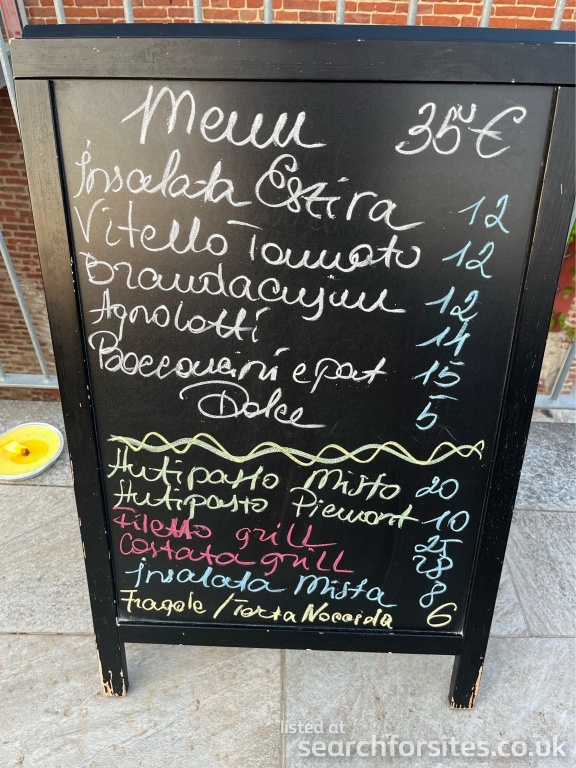 Menu 35 €
Insalata Estiva 12
Vitello Tonnato 12
Brandacujun 12
Agnolotti 14
Bocconcini e pat 15
Dolce 5
Antipasto Misto 20
Antipasto Piemont 10
Filetto grill 25
Costata grill 28
Insalata Mista 8
Fragole / Torta Nocciola 6
listed at
searchforsites.co.uk